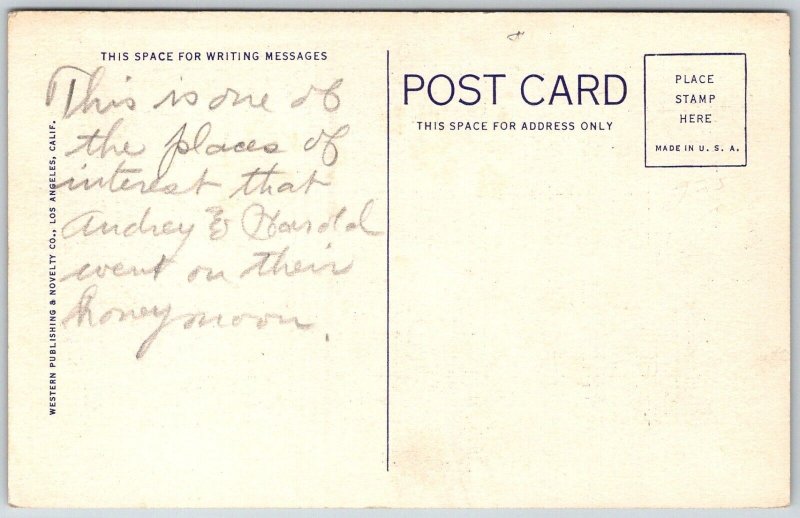 THIS SPACE FOR WRITING MESSAGES
This is one of
the places of
interest that
Audrey & Harold
went on their
honeymoon.
WESTERN PUBLISHING & NOVELTY CO., LOS ANGELES, CALIF.
POST CARD
THIS SPACE FOR ADDRESS ONLY
PLACE
STAMP
HERE
MADE IN U. S. A.